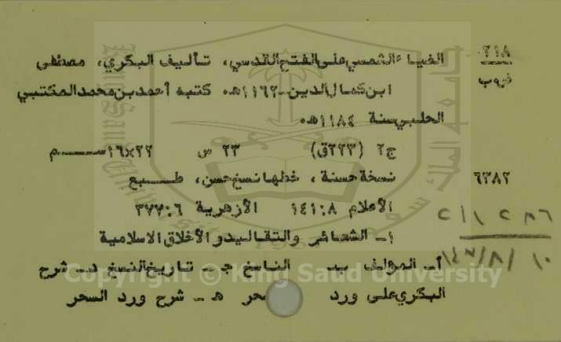 ٢١٨ الضياء الشمسي على الفتح القدسي، تأليف البكري، مصطفى
ابن كمال الدين ـ ١١٦٢هـ. كتبه أحمد بن محمد المكتبي
الحلبي سنة ١١٨٤هـ.
ج٢ (٢٢٣ق) ٢٣ س ٢٢×١٦سم
٦٣٨٢ نسخة حسنة، خطها نسخ حسن، طبع
الأعلام ١٤١:٨ الأزهرية ٣٧٧:٦
١ـ الشعائر والتقاليد والأخلاق الاسلامية
أـ المؤلف بـ الناسخ جـ تاريخ النسخ د ـ شرح
البكري على ورد هـ ـ شرح ورد السحر
Copyright © King Saud University